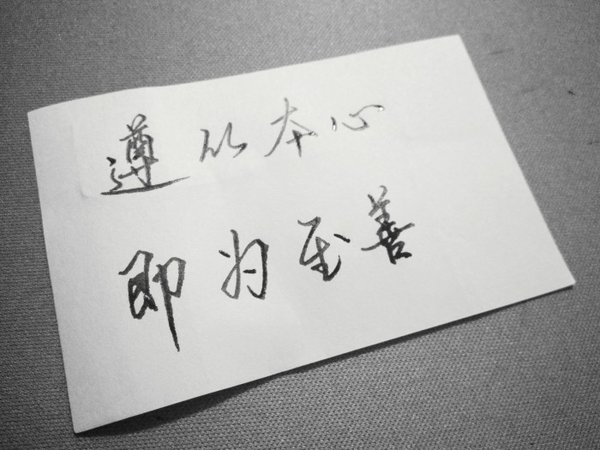 遵从本心
即为至善